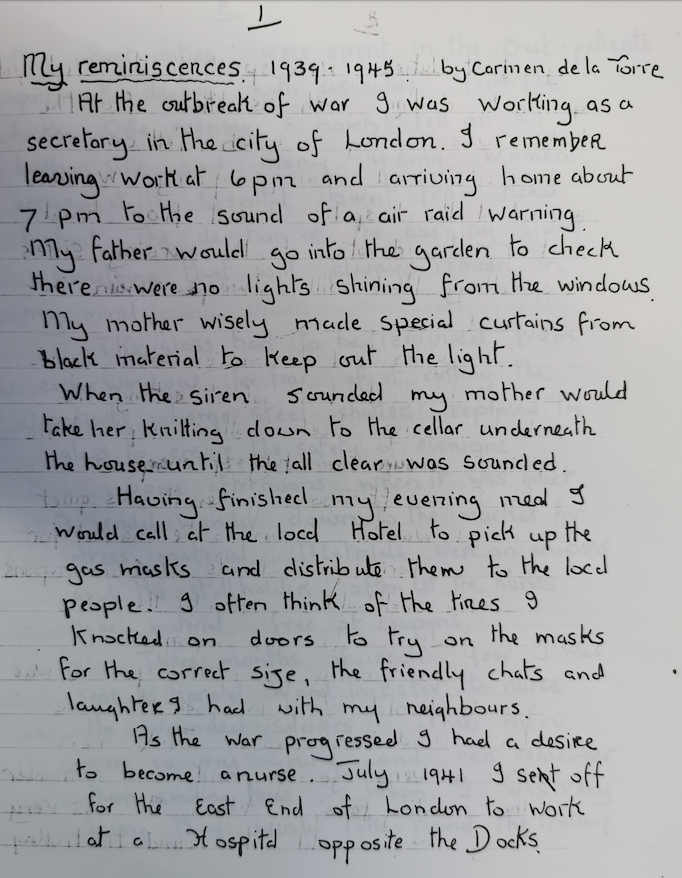 1
My reminiscences. 1939 - 1945. by Carmen de la Torre
At the outbreak of war I was working as a
secretary in the city of London. I remember
leaving work at 6 pm and arriving home about
7 pm to the sound of a air raid warning.
My father would go into the garden to check
there were no lights shining from the windows.
My mother wisely made special curtains from
black material to keep out the light.
When the siren sounded my mother would
take her knitting down to the cellar underneath
the house until the all clear was sounded.
Having finished my evening meal I
would call at the local Hotel to pick up the
gas masks and distribute them to the local
people. I often think of the times I
knocked on doors to try on the masks
for the correct size, the friendly chats and
laughter I had with my neighbours.
As the war progressed I had a desire
to become a nurse. July 1941 I set off
for the East End of London to work
at a Hospital opposite the Docks.